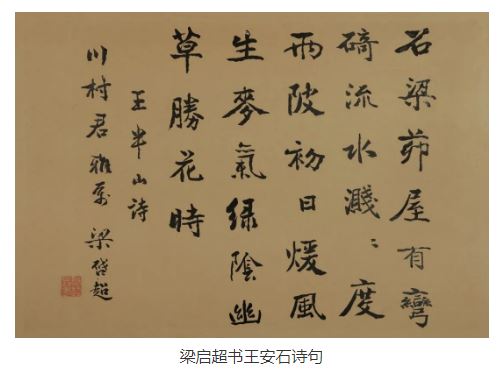 石梁茆屋有彎
碕流水濺〻度
兩陂初日煖風
生麥氣綠陰幽
草勝花時
王半山詩
川村君雅屬 梁啓超
梁启超书王安石诗句